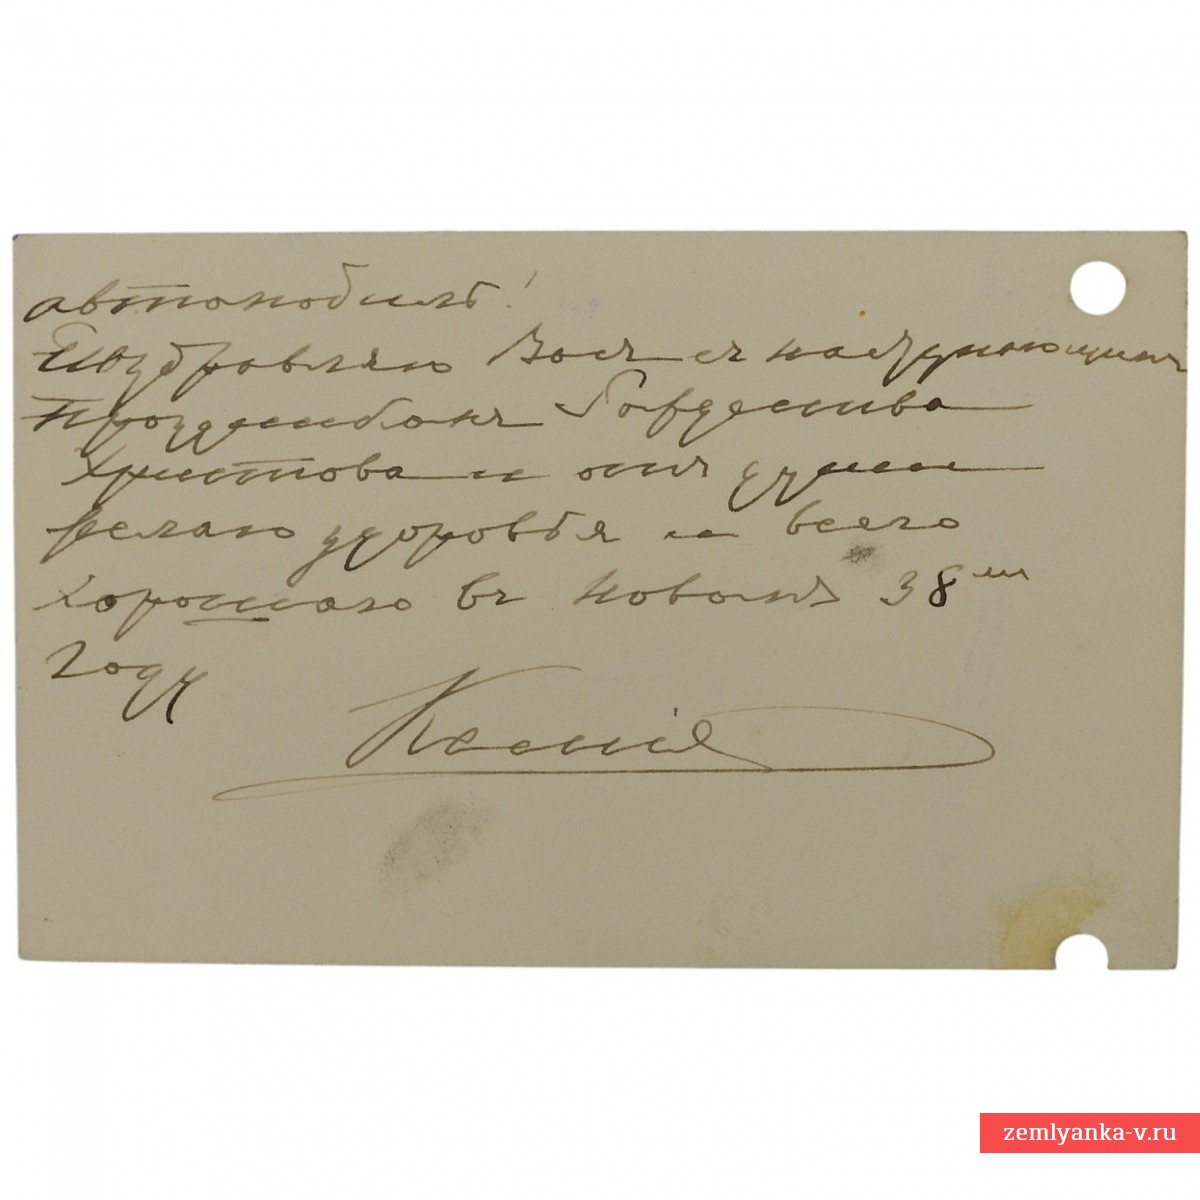 автомобиль!
Поздравляю Васъ съ наступающимъ
Праздникомъ Рождества
Христова и отъ души
желаю здоровья и всего
хорошаго въ новомъ 38ᵐ
году
Ксенія
zemlyanka-v.ru